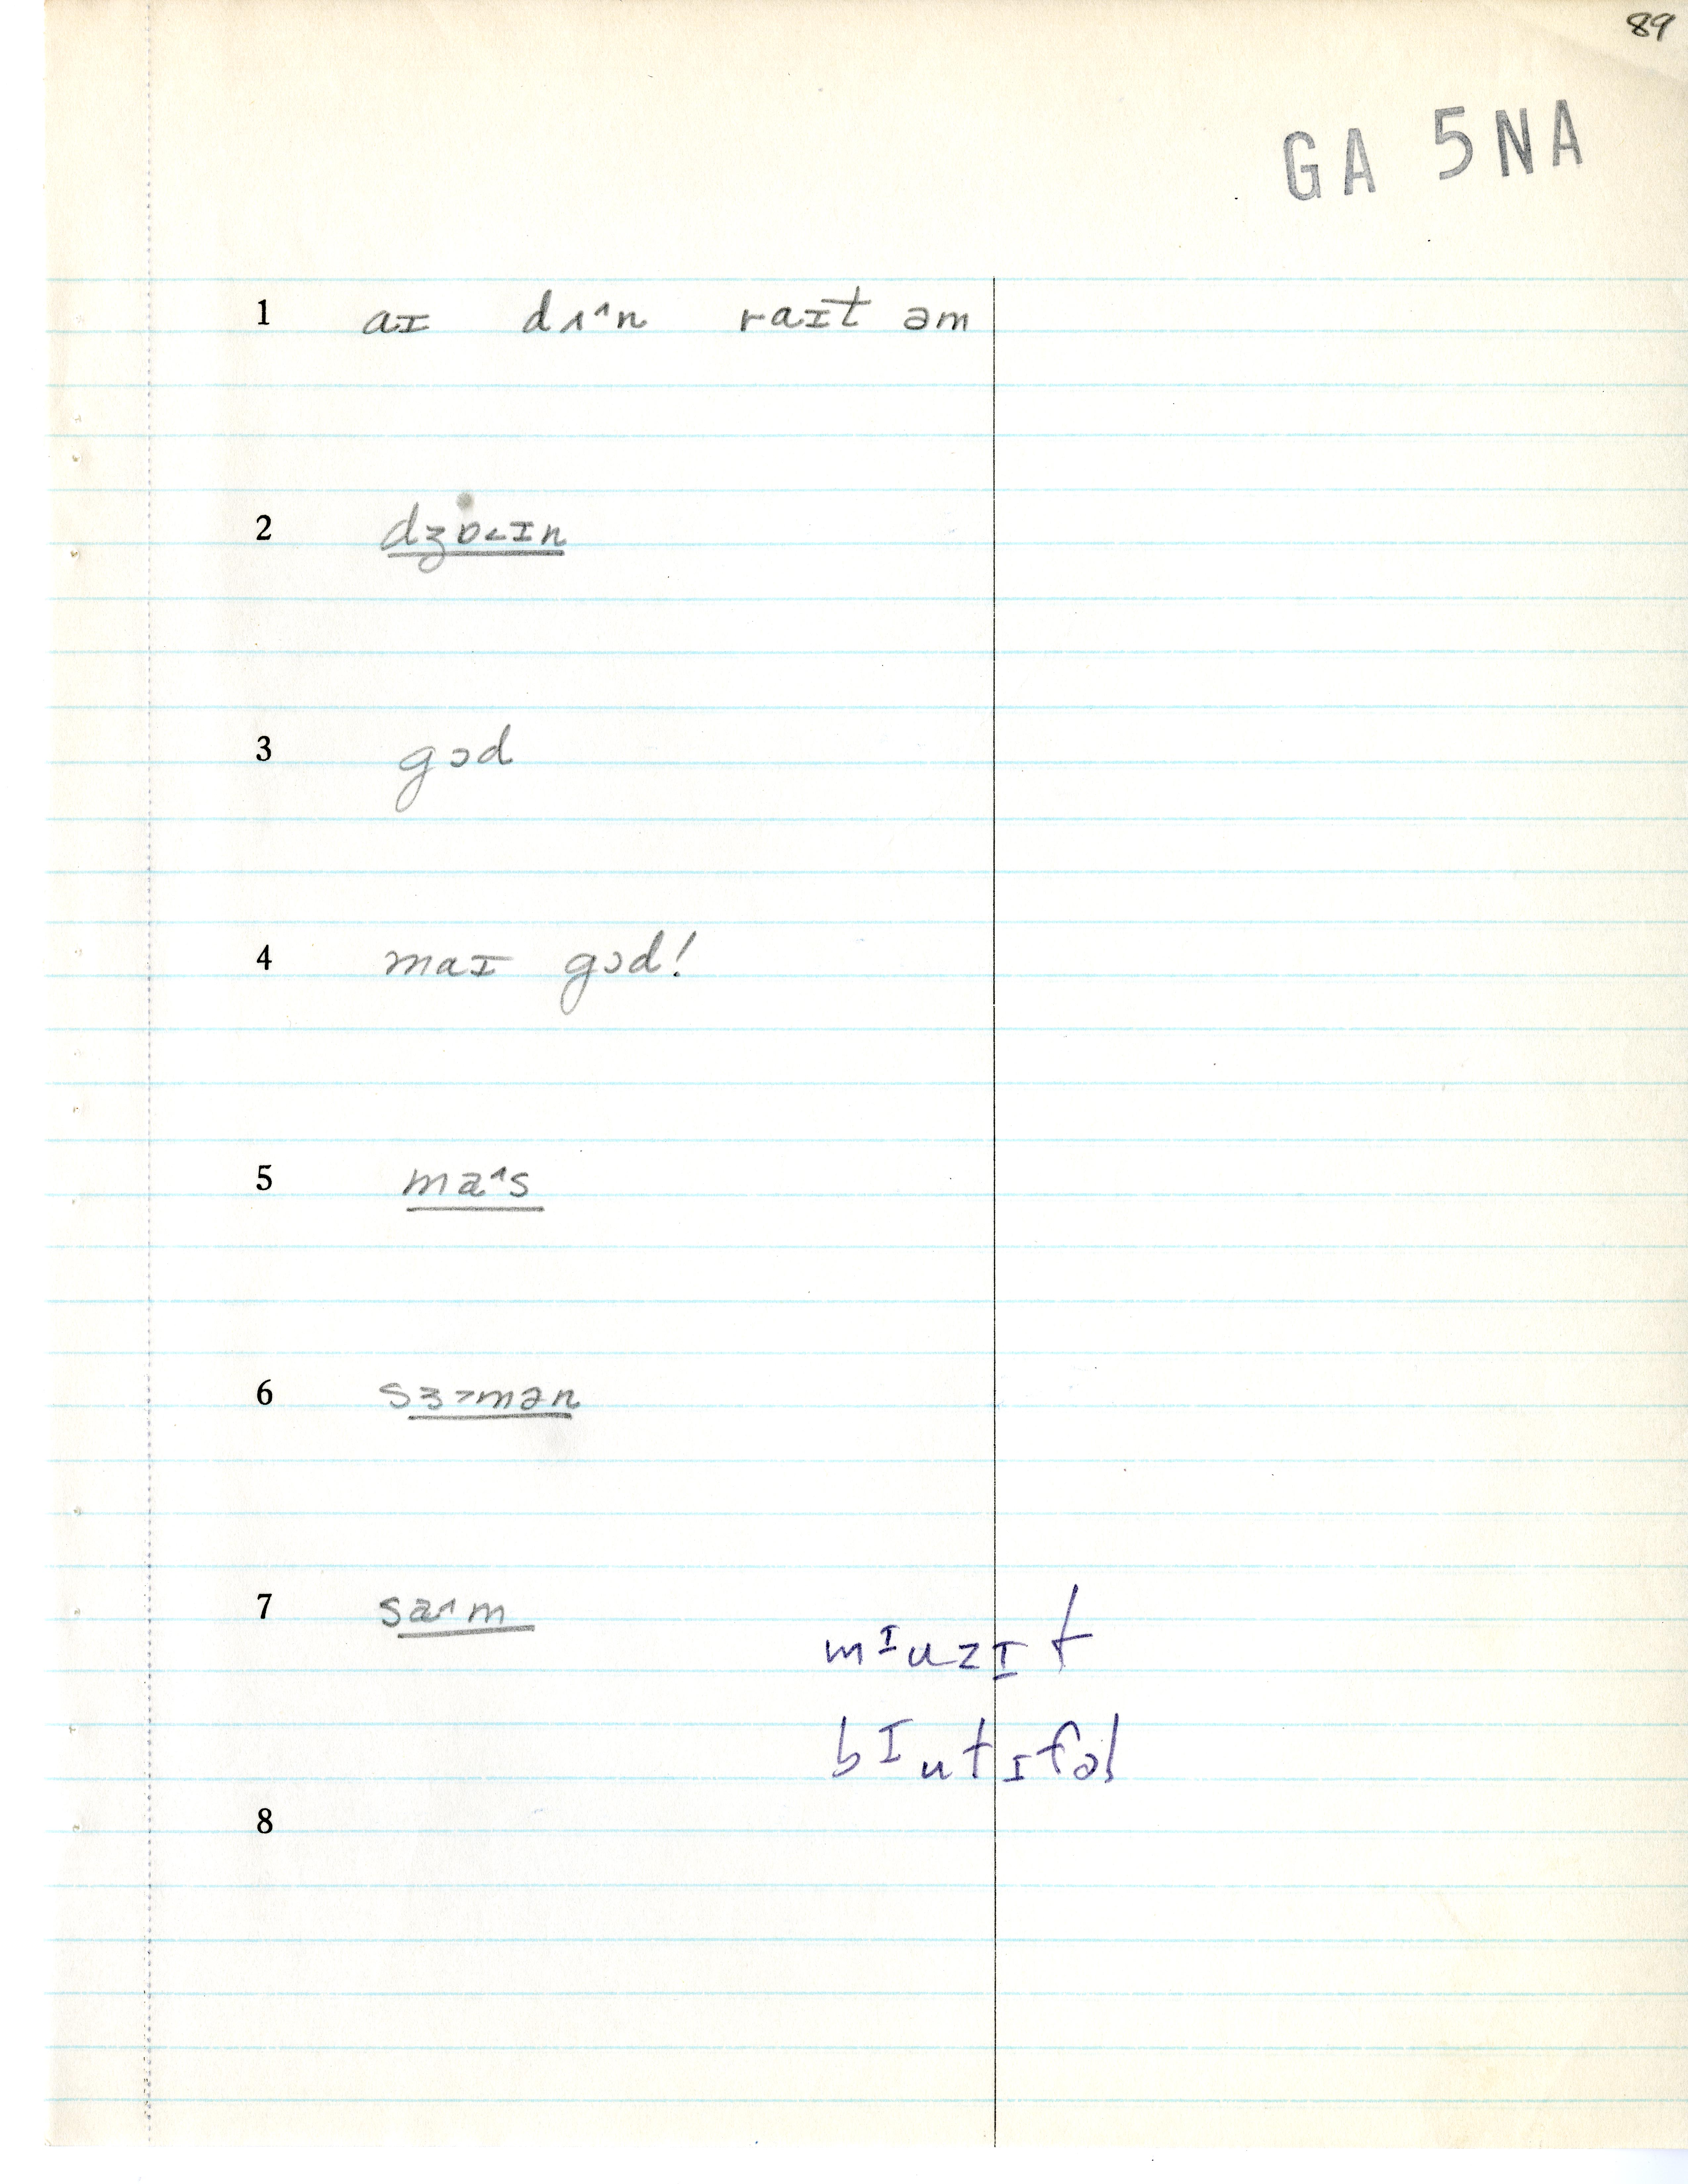 89
GA 5NA
1 aɪ dʌ^n raɪt əm
2 dʒɒ<ɪn
3 gɔd
4 maɪ gɔd!
5 ma^s
6 sɜ>mən
7 sa^m
mᶦuzɪt
bᶦutɪfəl
8